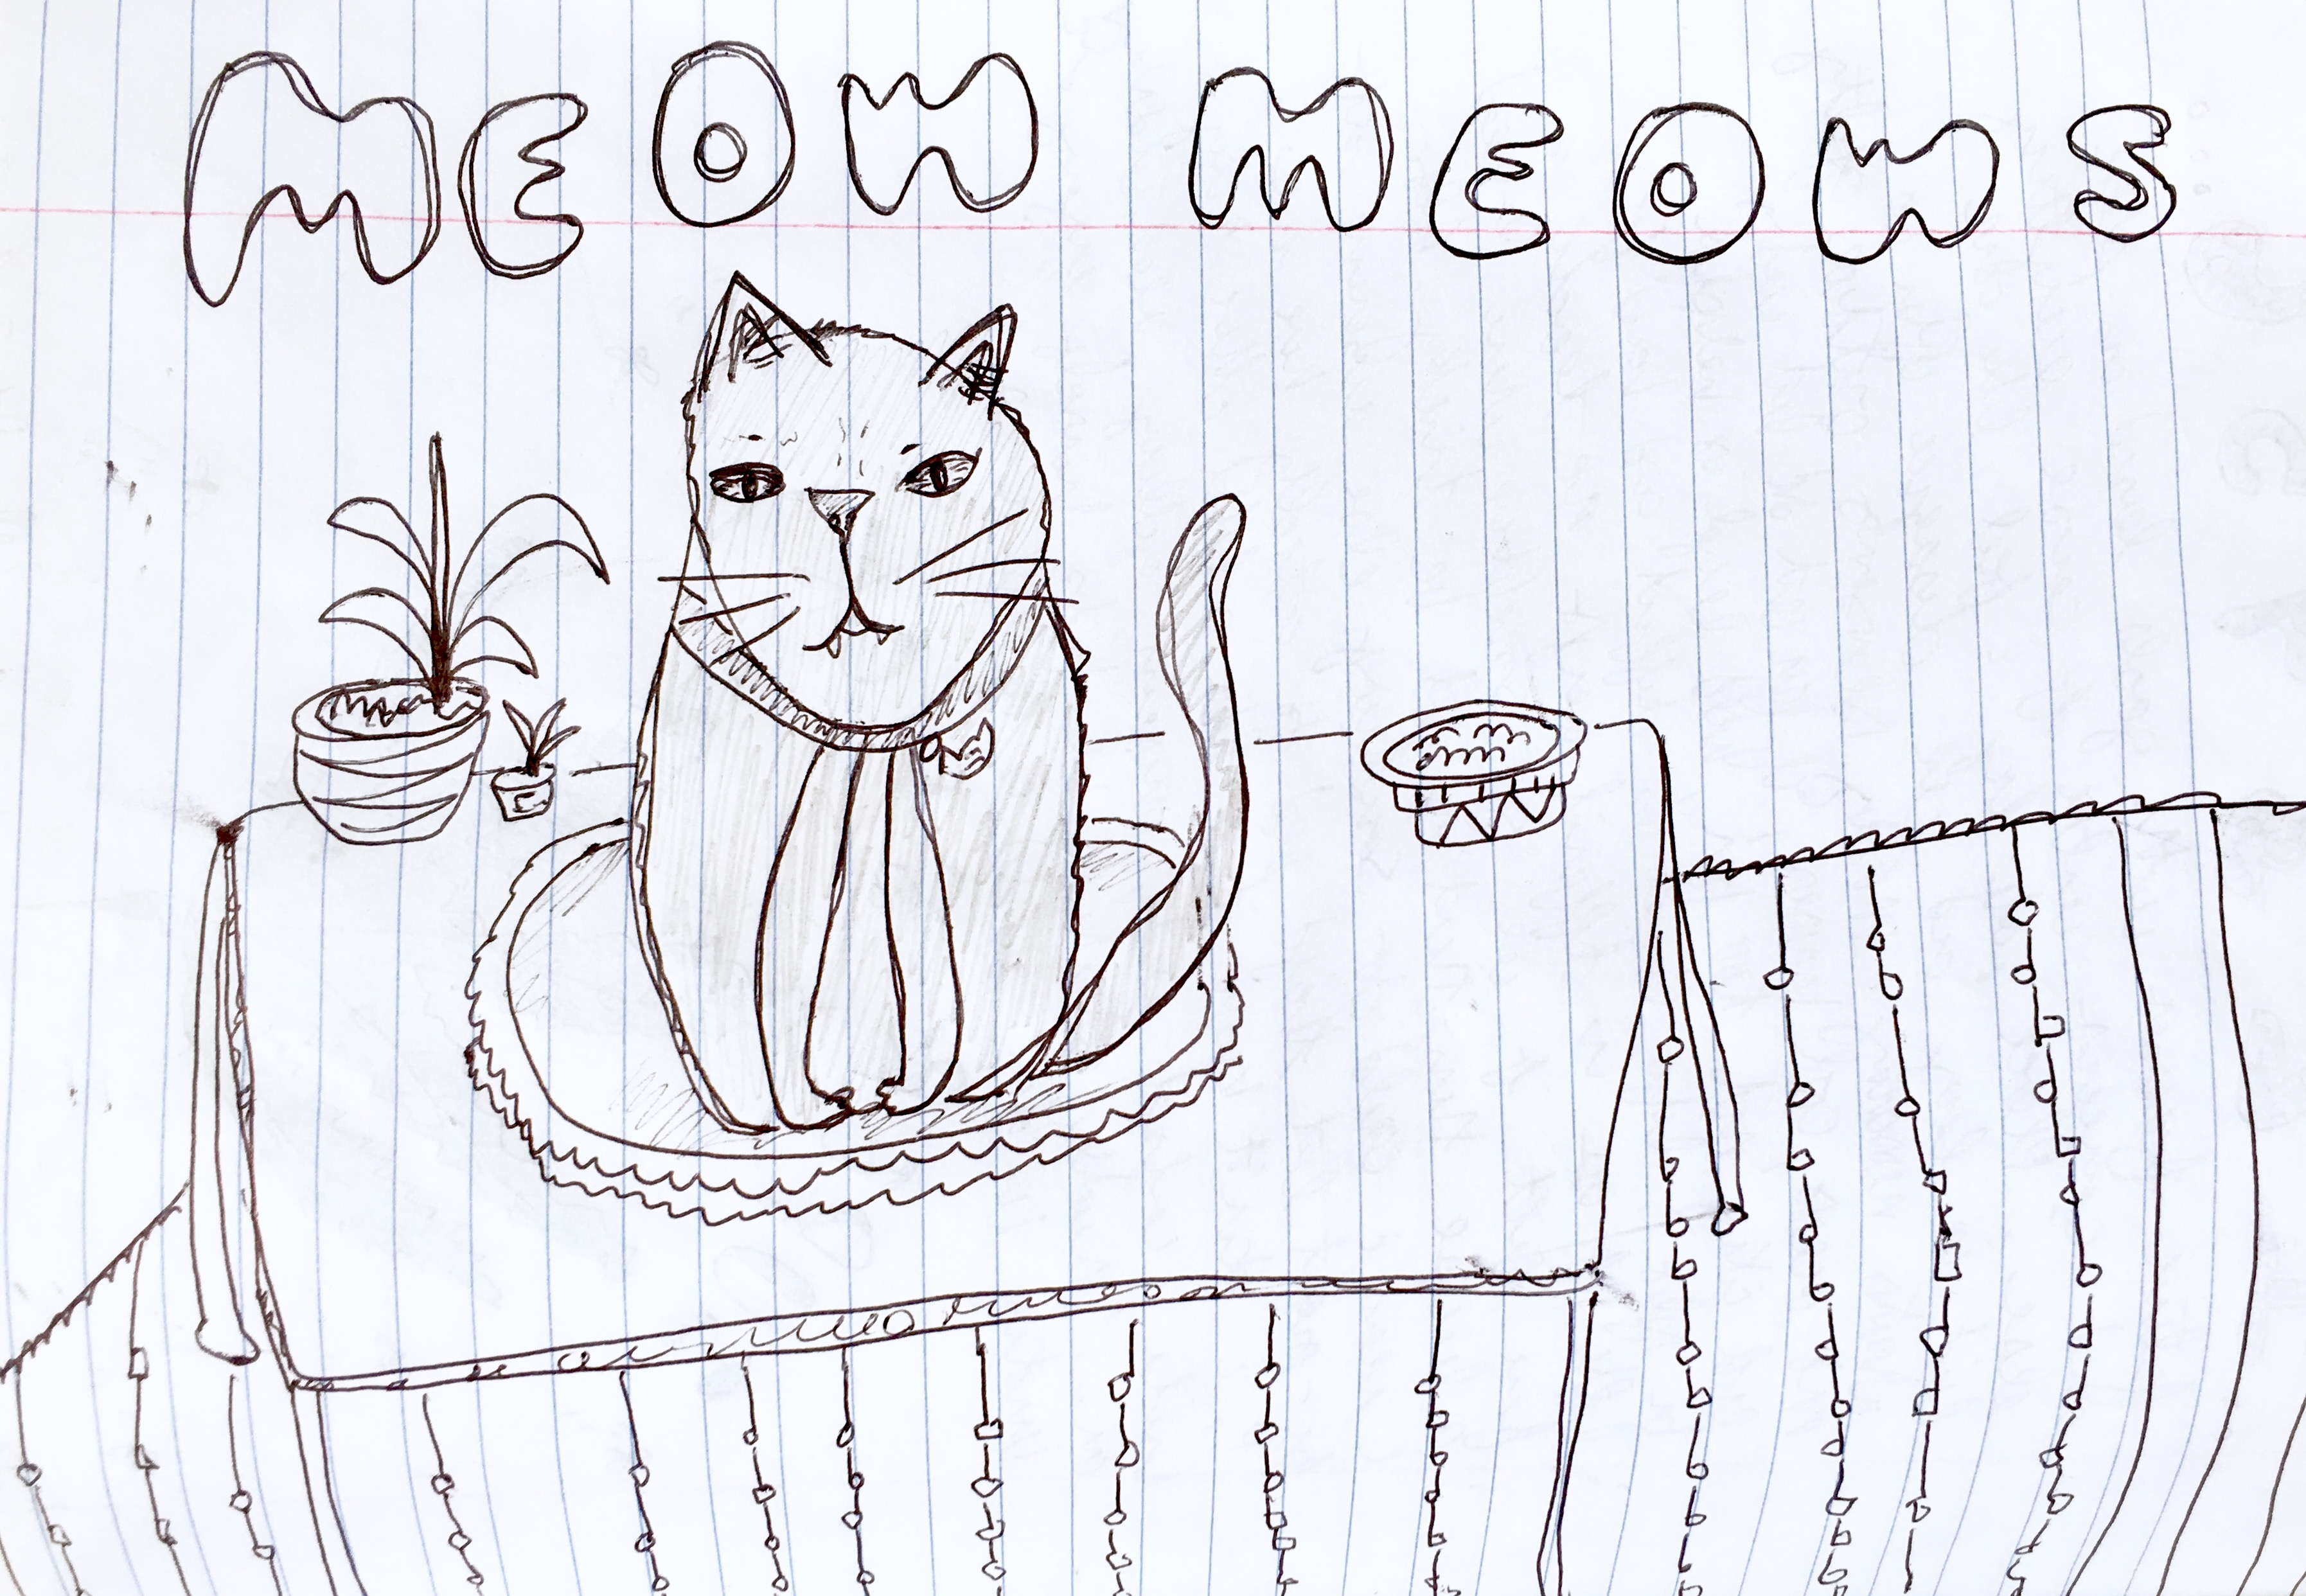 MEOW MEOWS